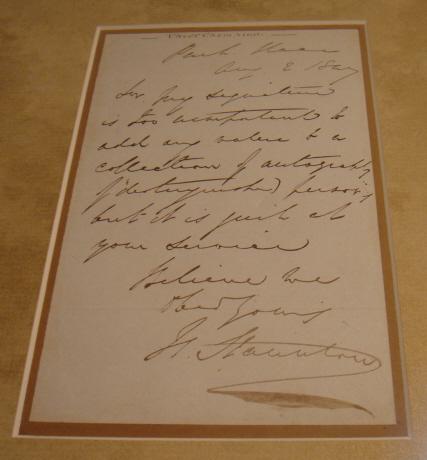 Aug 2 18
Sir my signature
is too
add any value to a
collection of autographs
of distinguished persons
but it is quite at
your service
Believe me
Yours
H. Staunton